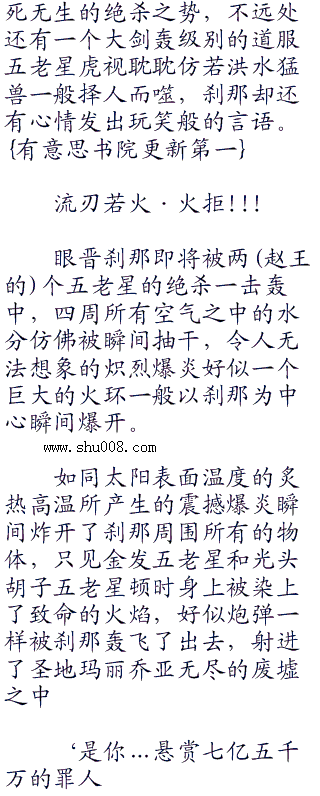 死无生的绝杀之势，不远处
还有一个大剑轰级别的道服
五老星虎视耽耽仿若洪水猛
兽一般择人而噬，刹那却还
有心情发出玩笑般的言语。
{有意思书院更新第一}
流刃若火·火拒!!!
眼晋刹那即将被两(赵王
的)个五老星的绝杀一击轰
中，四周所有空气之中的水
分仿佛被瞬间抽干，令人无
法想象的炽烈爆炎好似一个
巨大的火环一般以刹那为中
心瞬间爆开。
www.shu008.com
如同太阳表面温度的炙
热高温所产生的震撼爆炎瞬
间炸开了刹那周围所有的物
体，只见金发五老星和光头
胡子五老星顿时身上被染上
了致命的火焰，好似炮弹一
样被刹那轰飞了出去，射进
了圣地玛丽乔亚无尽的废墟
之中
‘是你...悬赏七亿五千
万的罪人